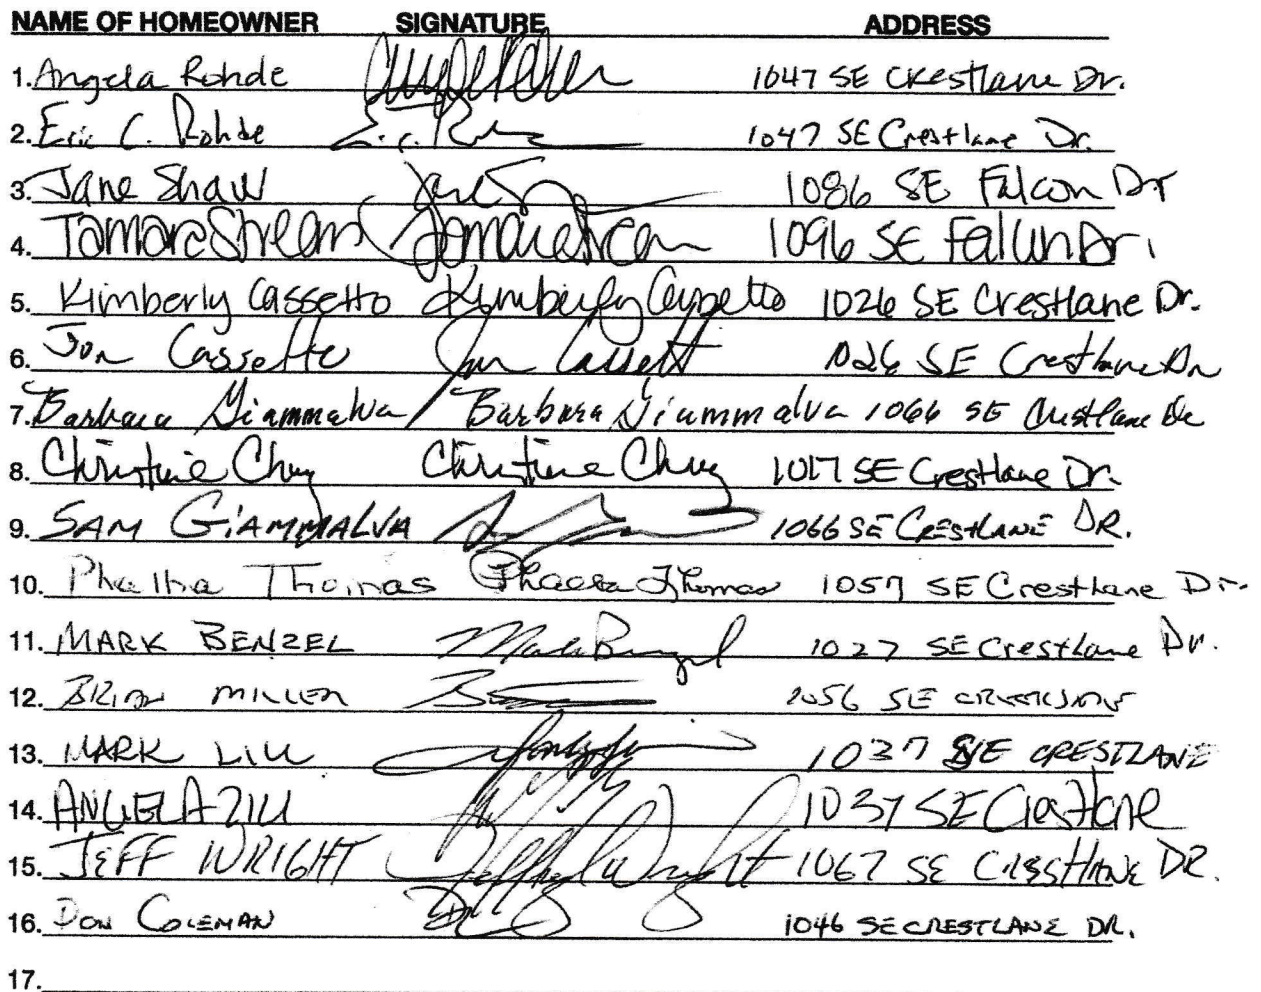 NAME OF HOMEOWNER SIGNATURE ADDRESS
1. Angela Rohde 1047 SE Crestlane Dr.
2. Eric C. Rohde E. C. 1047 SE Crestlane Dr.
3. Jane Shaw Jane 1086 SE Falcon Dr
4. Tamara Stream Tamara Stream 1096 SE Falcon Dr.
5. Kimberly Cassetto Kimberly Cassetto 1026 SE Crestlane Dr.
6. Jon Cassetto Jon Cassett 1026 SE Crestlane Dr
7. Barbara Giammalva Barbara Giammalva 1066 SE Crestlane Dr
8. Christine Chuy Christine Chuy 1017 SE Crestlane Dr.
9. SAM GiAMMALVA 1066 SE CRESTLANE DR.
10. Thomas Thomas 1057 SE Crestlane Dr.
11. MARK BENZEL Mark Benzel 1027 SE Crestlane Dr.
12. BRIAN MILLER 1056 SE CRESTLANE
13. MARK LIU 1037 SE CRESTLANE
14. ANGELA 1037 SE Crestlane
15. JEFF WRIGHT Jeffrey Wright 1067 SE CRESTLANE DR.
16. DON COLEMAN 1046 SE CRESTLANE DR.
17.